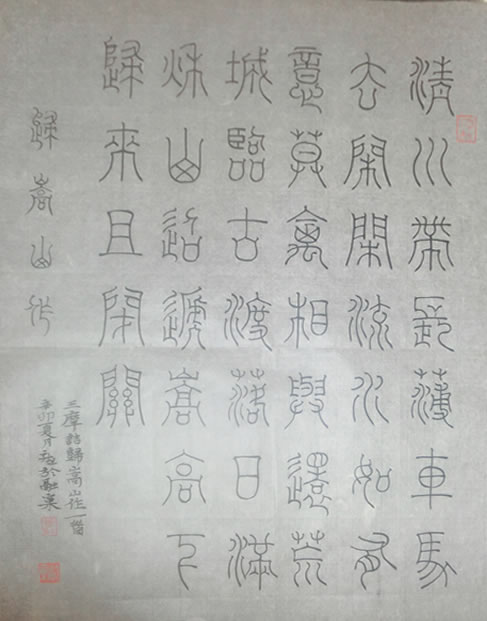 清川帶長薄車馬
去閑閑流水如有
意莫禽相與還荒
城臨古渡落日滿
秋山迢遞嵩高下
歸來且閉關
歸嵩山作
王摩詰歸嵩山作一首
辛卯夏月